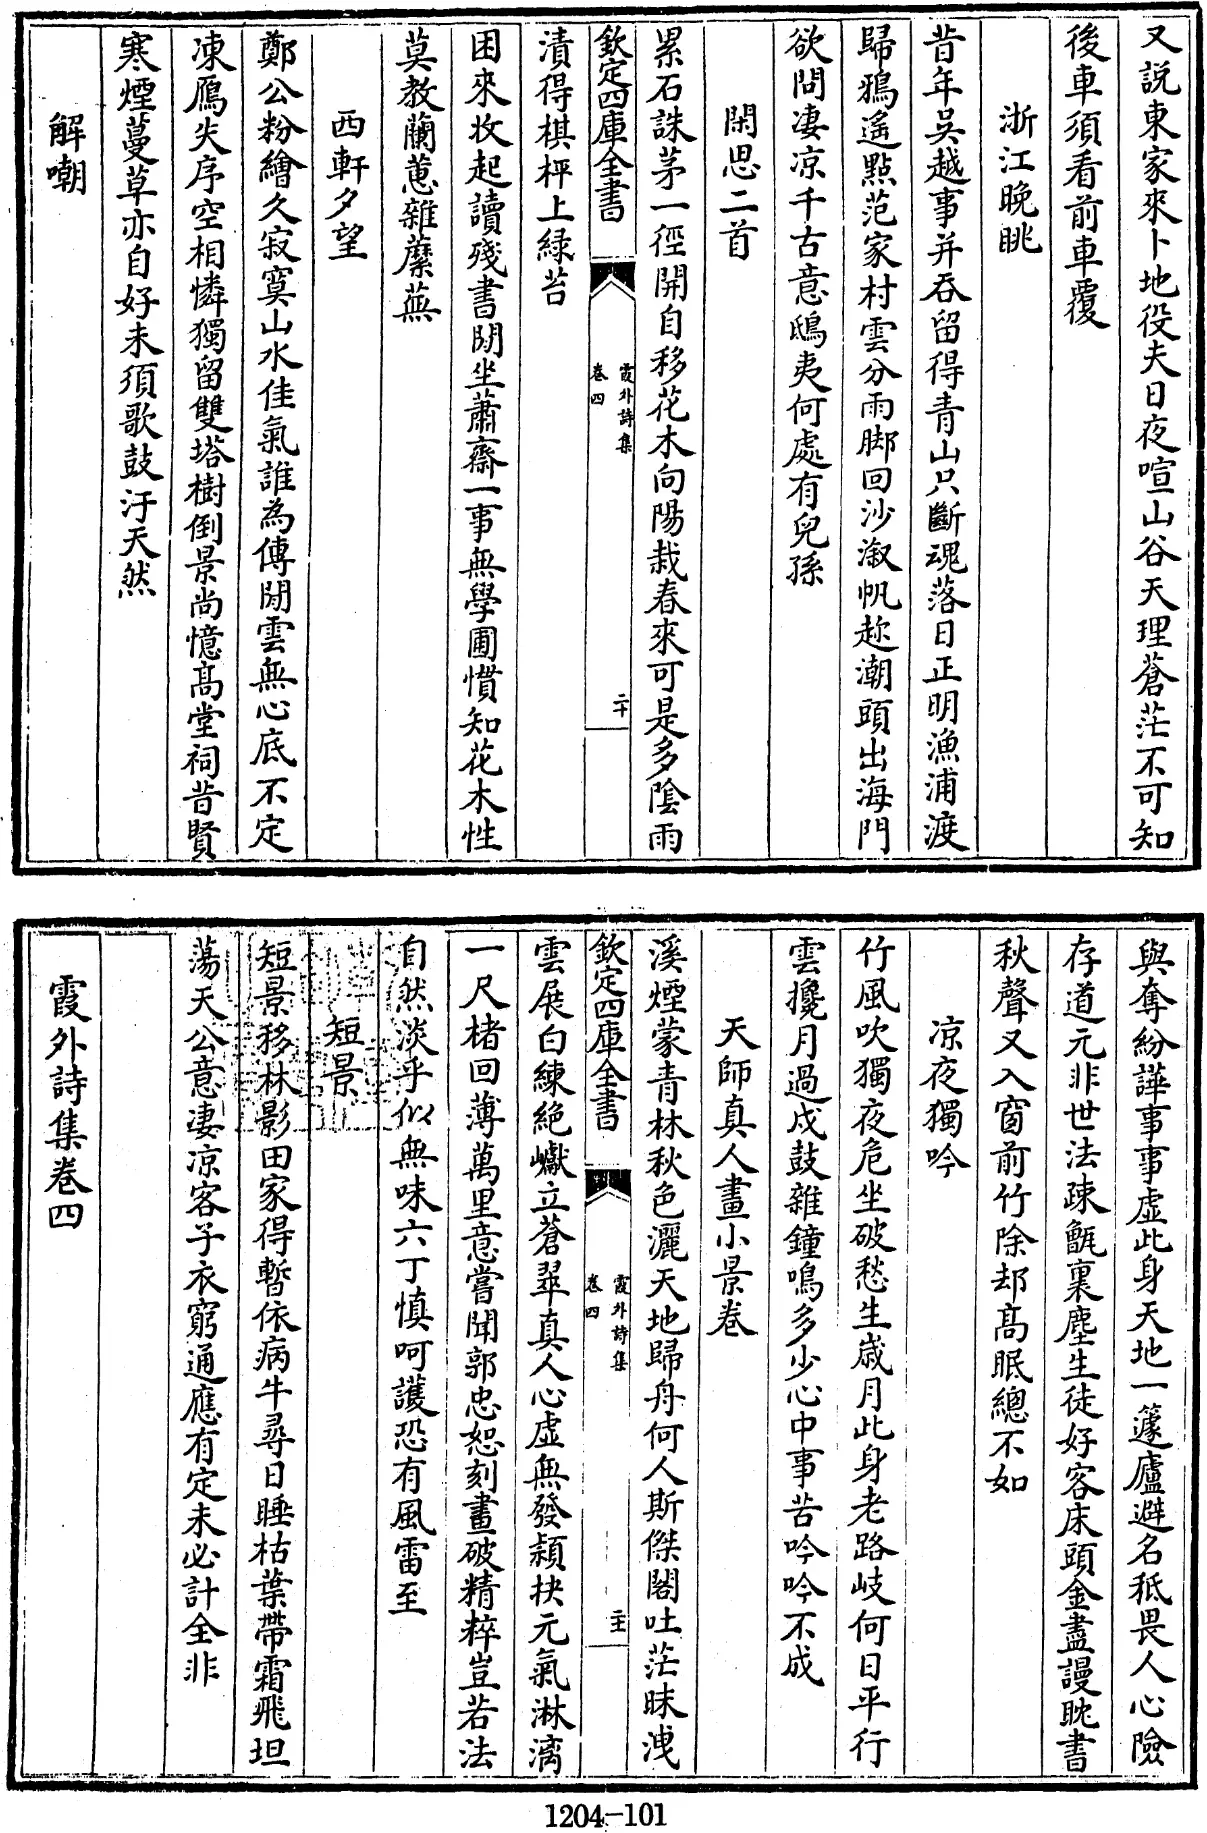 又說東家來卜地役夫日夜喧山谷天理蒼茫不可知
後車須看前車覆
浙江晚眺
昔年吳越事并吞留得青山只斷魂落日正明漁浦渡
歸鴉遙點范家村雲分雨脚回沙溆帆趂潮頭出海門
欲問凄凉千古意鴟夷何處有兒孫
閑思二首
累石誅茅一徑開自移花木向陽栽春來可是多陰雨
欽定四庫全書
霞外詩集
卷四
二十
漬得棋枰上緑苔
困來收起讀殘書閑坐蕭齋一事無學圃慣知花木性
莫教蘭蕙雜蘪蕪
西軒夕望
鄭公粉繪久寂寞山水佳氣誰為傳閒雲無心底不定
凍鴈失序空相憐獨留雙塔樹倒景尚憶髙堂祠昔賢
寒煙蔓草亦自好未須歌鼓汙天然
解嘲
與奪紛譁事事虛此身天地一蘧廬避名秪畏人心險
存道元非世法疎甑裏塵生徒好客床頭金盡謾耽書
秋聲又入窗前竹除却髙眠總不如
凉夜獨吟
竹風吹獨夜危坐破愁生歲月此身老路岐何日平行
雲攙月過戍鼓雜鐘鳴多少心中事苦吟吟不成
天師真人畫小景卷
溪煙蒙青林秋色灑天地歸舟何人斯傑閣吐茫昧洩
欽定四庫全書
霞外詩集
卷四
二十一
雲展白練絶巘立蒼翠真人心虛無發潁抉元氣淋漓
一尺楮回薄萬里意嘗聞郭忠恕刻畫破精粹豈若法
自然淡乎似無味六丁慎呵護恐有風雷至
短景
短景移林影田家得暫依病牛尋日睡枯葉帶霜飛坦
蕩天公意凄凉客子衣窮通應有定未必計全非
霞外詩集卷四
1204-101